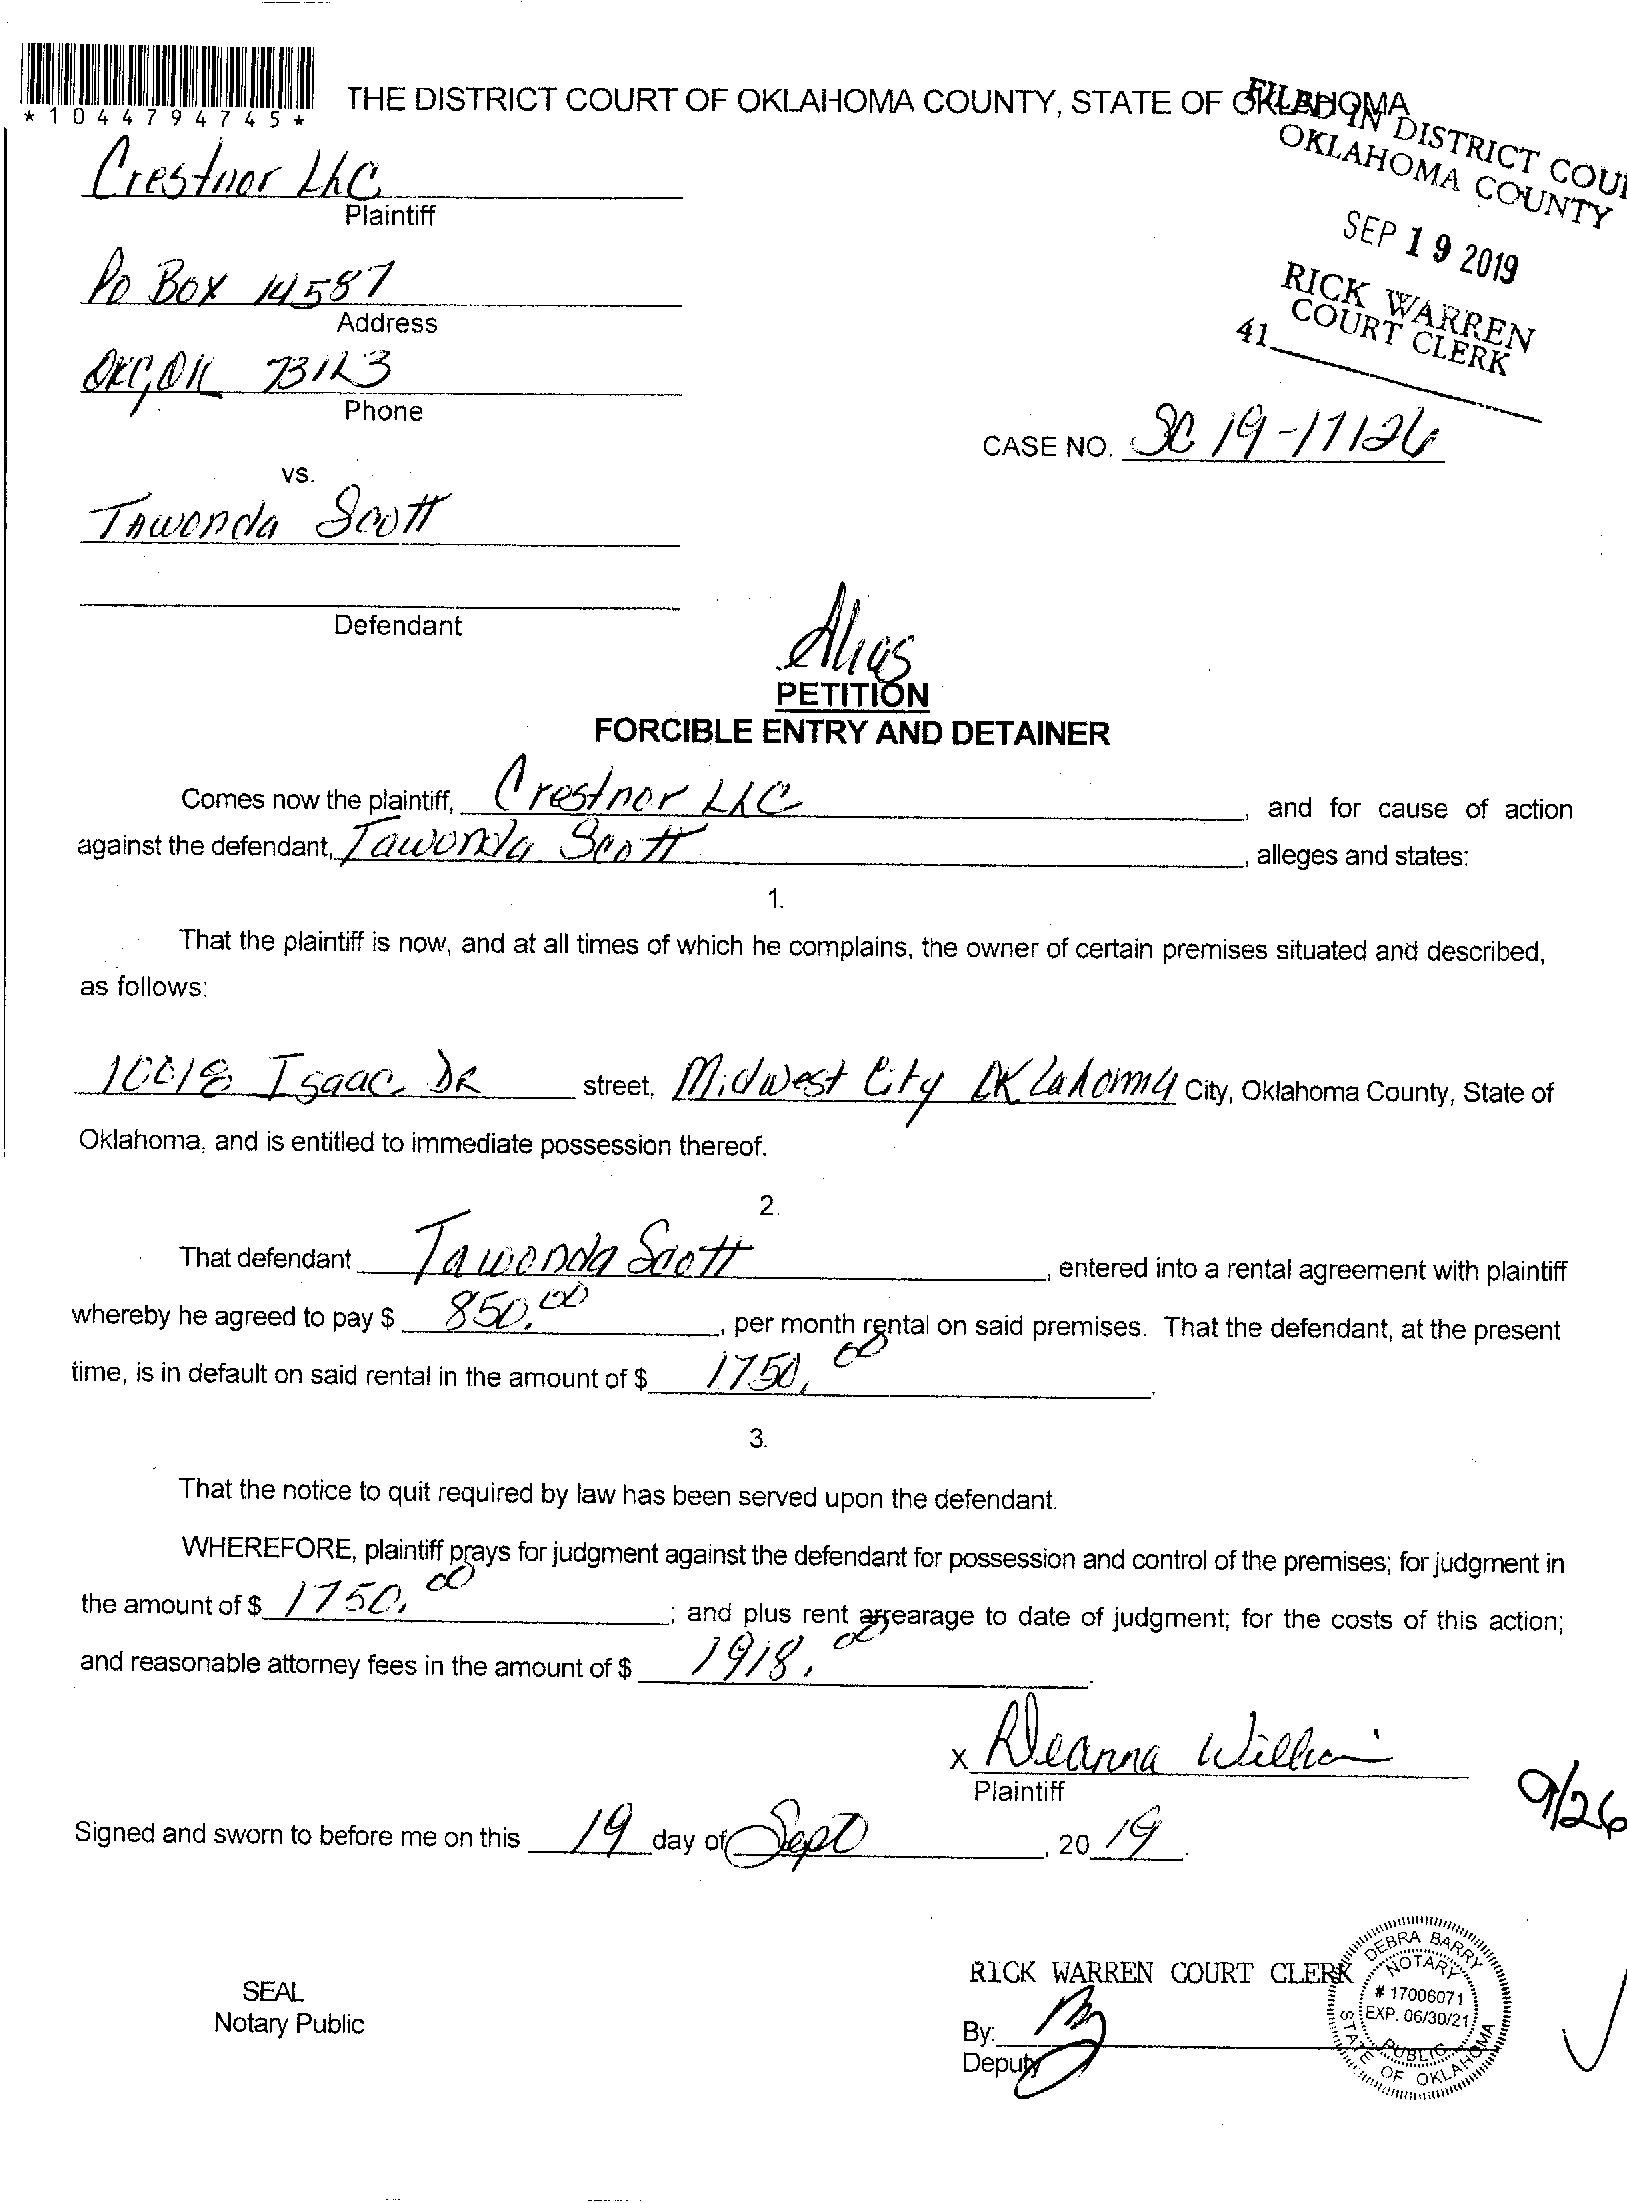 *1044794745*
THE DISTRICT COURT OF OKLAHOMA COUNTY, STATE OF OKLAHOMA
FILED IN DISTRICT COUR
OKLAHOMA COUNTY
SEP 19 2019
RICK WARREN
COURT CLERK
41
Crestnor LLC
Plaintiff
PO Box 14587
Address
OKC, OK 73123
Phone
CASE NO. SC 19-17126
vs.
Tawonda Scott
Defendant
Alias
PETITION
FORCIBLE ENTRY AND DETAINER
Comes now the plaintiff, Crestnor LLC, and for cause of action
against the defendant, Tawonda Scott, alleges and states:
1.
That the plaintiff is now, and at all times of which he complains, the owner of certain premises situated and described,
as follows:
10018 Isaac DR street, Midwest City Oklahoma City, Oklahoma County, State of
Oklahoma, and is entitled to immediate possession thereof.
2.
That defendant Tawonda Scott, entered into a rental agreement with plaintiff
whereby he agreed to pay $ 850.00, per month rental on said premises. That the defendant, at the present
time, is in default on said rental in the amount of $ 1750.00.
3.
That the notice to quit required by law has been served upon the defendant.
WHEREFORE, plaintiff prays for judgment against the defendant for possession and control of the premises; for judgment in
the amount of $ 1750.00; and plus rent arrearage to date of judgment; for the costs of this action;
and reasonable attorney fees in the amount of $ 1918.00.
x Deanna William
Plaintiff
9/26
Signed and sworn to before me on this 19 day of Sept, 2019.
RICK WARREN COURT CLERK
SEAL
Notary Public
By:
Deputy
DEBRA BARRY
NOTARY
# 17006071
EXP. 06/30/21
PUBLIC
STATE OF OKLAHOMA